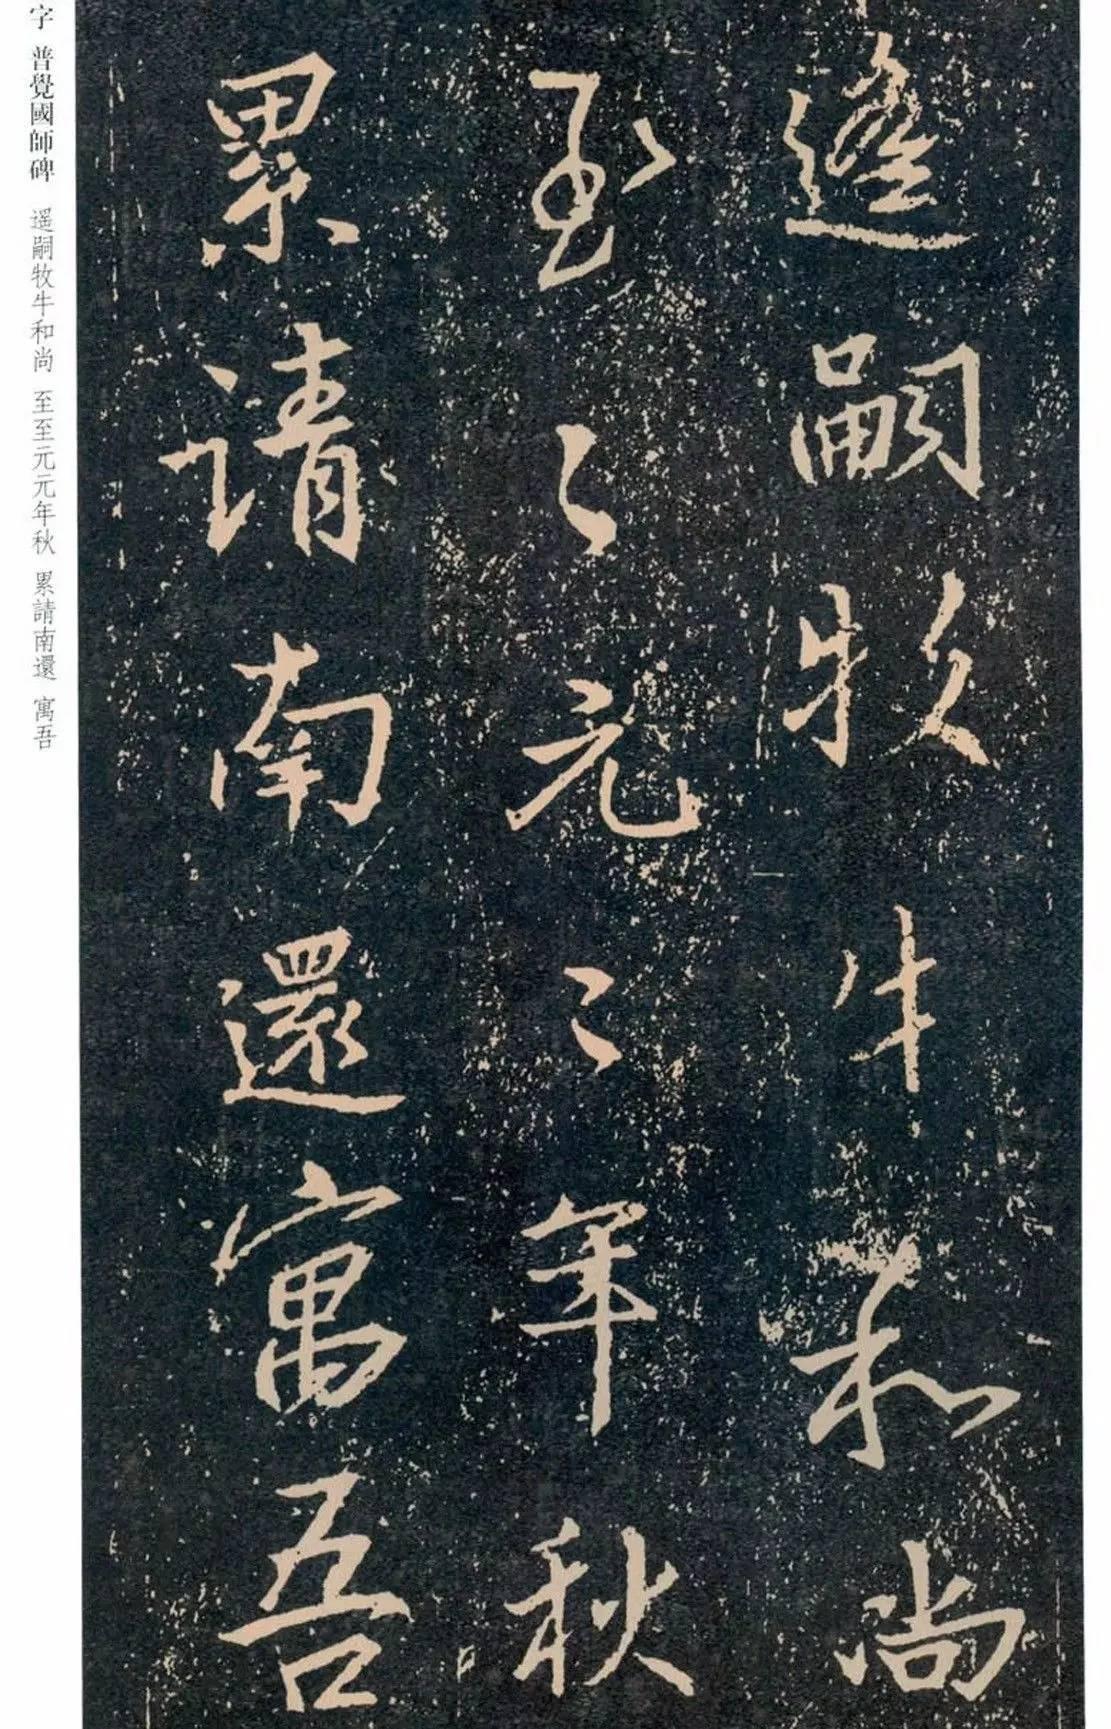 遥嗣牧牛和尚
至〻元〻年秋
累請南還寓吾
字 普覺國師碑 遥嗣牧牛和尚 至至元元年秋 累請南還 寓吾